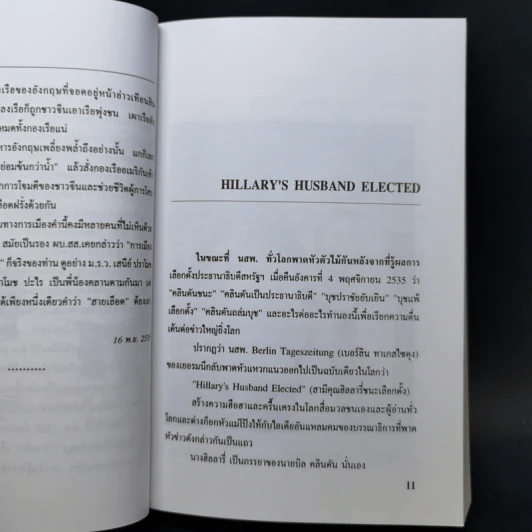 เรือของอังกฤษที่จอดอยู่หน้าอ่าวเทียนสิน
ลงเรือก็ถูกชาวจีนเอาเรือพุ่งชน เผาเรือ
หมดทั้งกองเรือแน่
หารอังกฤษเพลี่ยงพล้ำถึงอย่างนั้น
ย่อมข้นกว่าน้ำ" แล้วสั่งกองเรืออเมริกันเข้า
กการโจมตีของชาวจีนและช่วยชีวิตผู้การโฮป
ลือดฝรั่งด้วยกัน
ทางการเมืองคำนี้คงมีหลายคนที่ไม่เห็นด้วย
สมัยเป็นรอง ผบ.สส.เคยกล่าวว่า "การเมือง
" ก็จริงของท่าน ดูอย่าง ม.ร.ว. เสนีย์ ปราโมช
โมช ปะไร เป็นพี่น้องคลานตามกันมา แต่
ด้เพียงหนึ่งเดียวคำว่า "สายเลือด" ต้อง
16 พ.ย. 253
..........
HILLARY'S HUSBAND ELECTED
ในขณะที่ นสพ. ทั่วโลกพาดหัวตัวไม้กันหลังจากที่รู้ผลการ
เลือกตั้งประธานาธิบดีสหรัฐฯ เมื่อคืนอังคารที่ 4 พฤศจิกายน 2535 ว่า
"คลินตันชนะ" "คลินตันเป็นประธานาธิบดี" "บุชปราชัยยับเยิน" "บุชแพ้
เลือกตั้ง" "คลินตันถล่มบุช" และอะไรต่ออะไรทำนองนี้เพื่อเรียกความตื่น
เต้นต่อข่าวใหญ่ยิ่งโลก
ปรากฏว่า นสพ. Berlin Tageszeitung (เบอร์ลิน ทาเกสไซตุง)
ของเยอรมนีกลับพาดหัวแหวกแนวออกไปเป็นฉบับเดียวในโลกว่า
"Hillary's Husband Elected" (สามีคุณฮิลลารี่ชนะเลือกตั้ง)
สร้างความฮือฮาและครื้นเครงในโลกสื่อมวลชนเองและผู้อ่านทั่ว
โลกและต่างก็ยกหัวแม่โป้งให้กับไอเดียอันแหลมคมของบรรณาธิการที่พาด
หัวข่าวดังกล่าวกันเป็นแถว
นางฮิลลารี่ เป็นภรรยาของนายบิล คลินตัน นั่นเอง
11